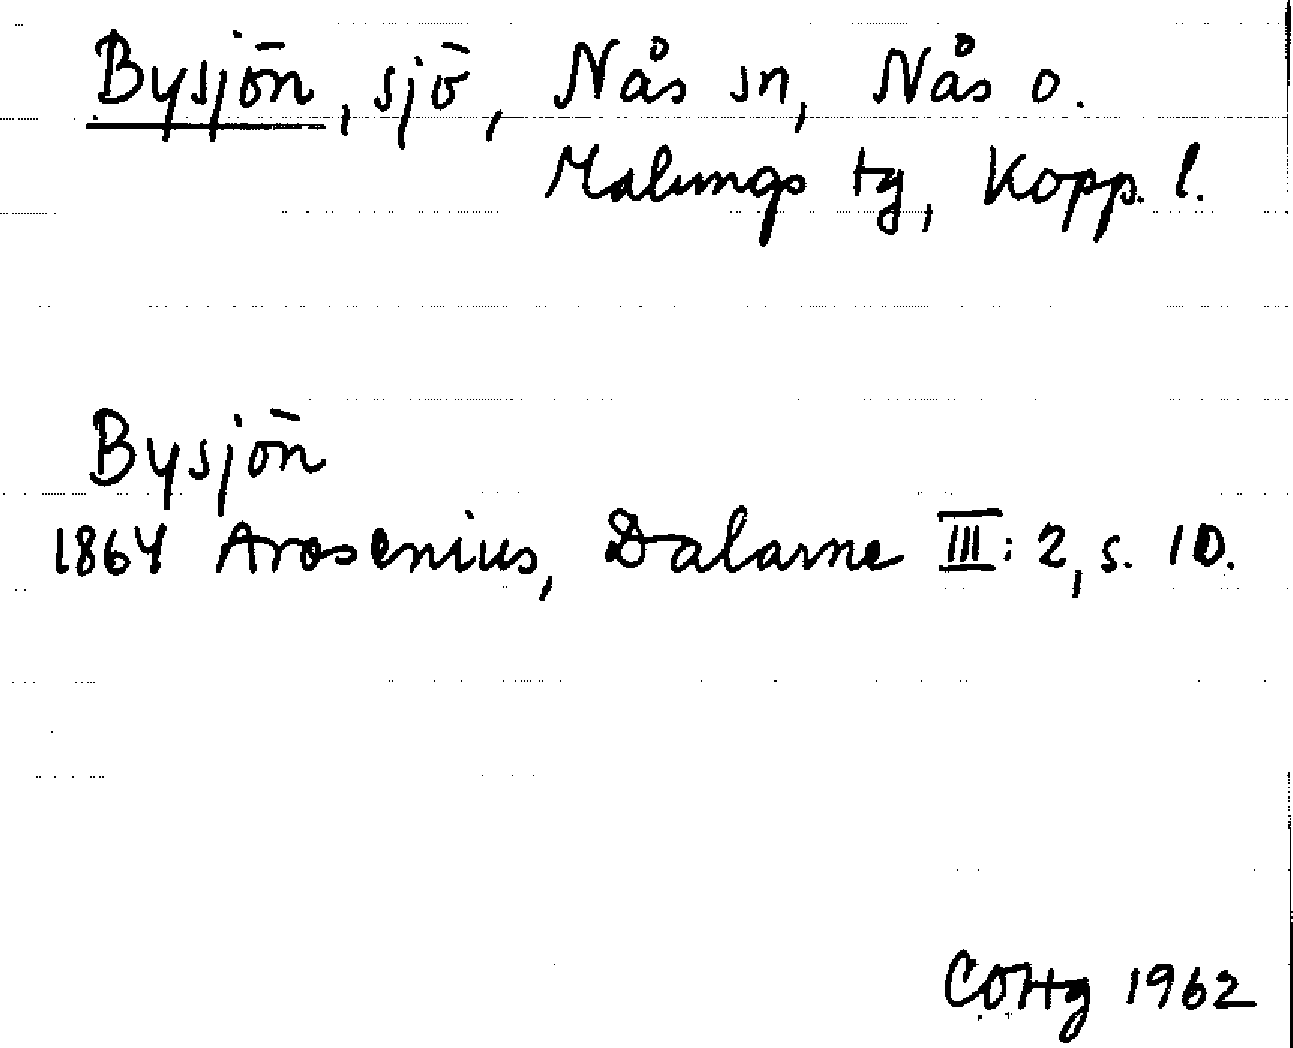 Bysjön, sjö, Nås sn, Nås o.
Malungs tg, Kopp. l.
Bysjön
1864 Arosenius, Dalarne III: 2, s. 10.
COHg 1962